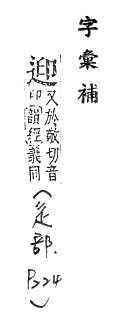 字彙補
迎
又於敬切音
印韻經義同
(辵部.
P.224
)